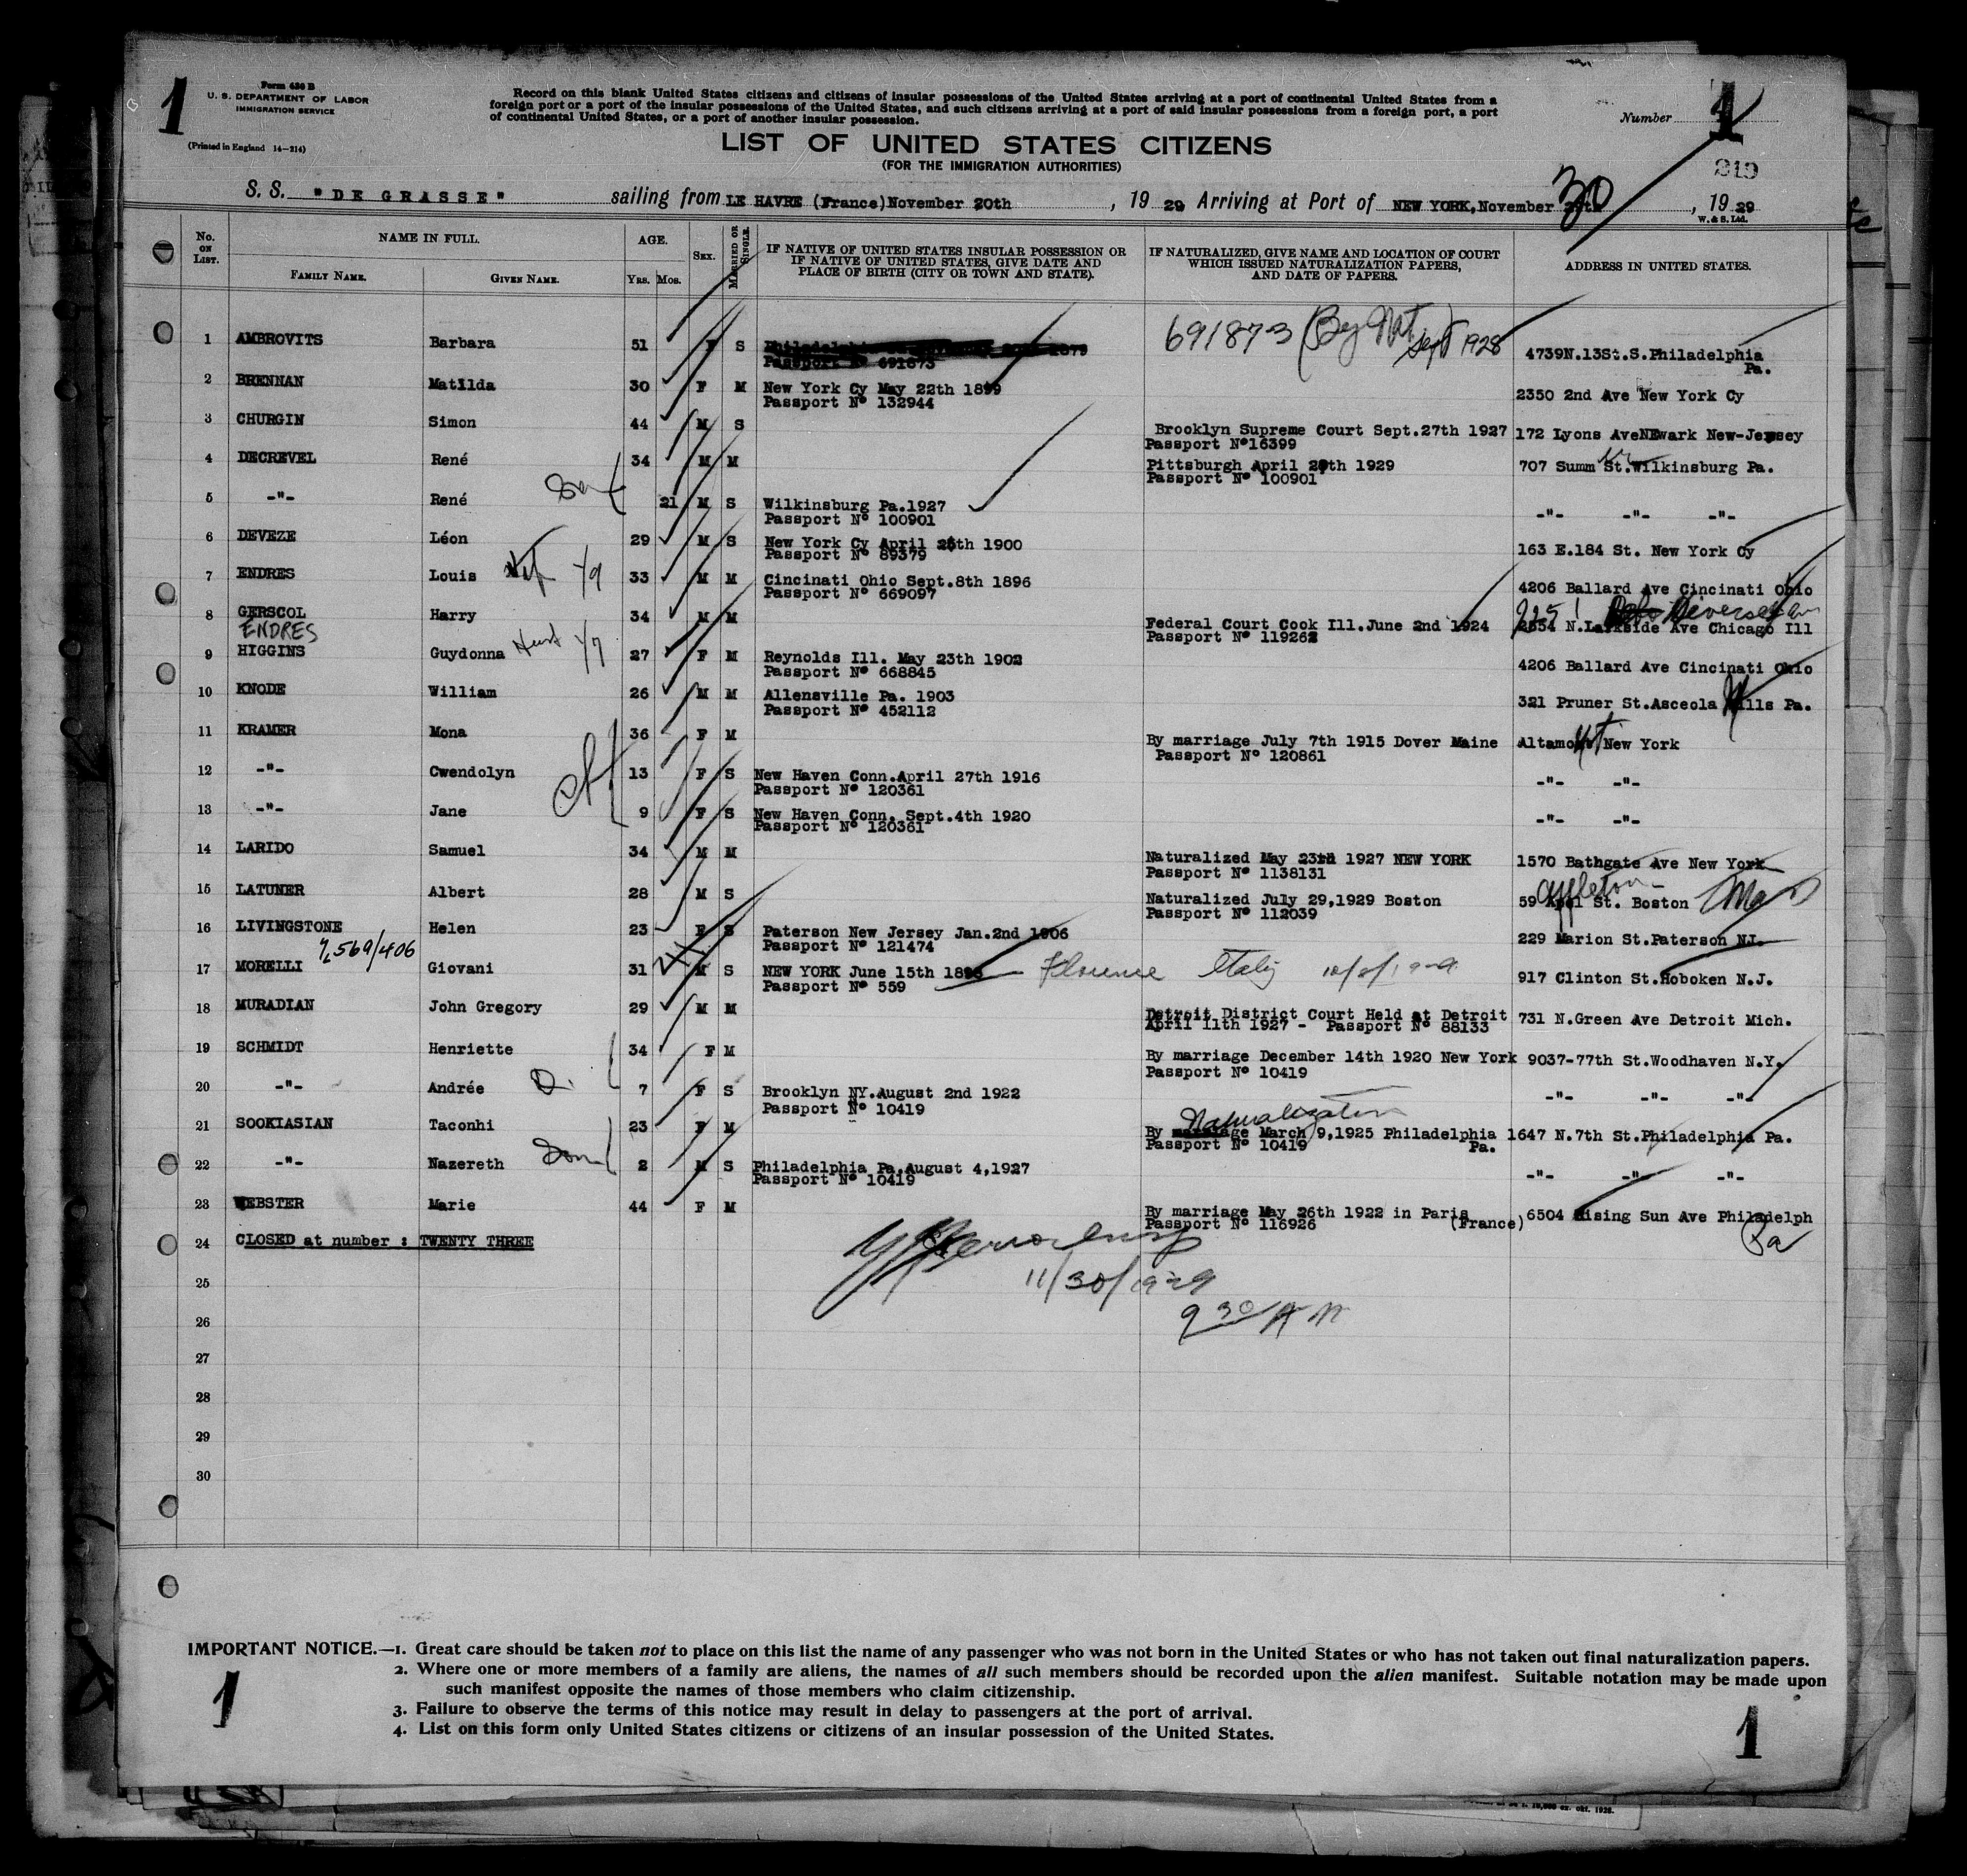 1
Form 630 B
U. S. DEPARTMENT OF LABOR
IMMIGRATION SERVICE
(Printed in England 14-214)
Record on this blank United States citizens and citizens of insular possessions of the United States arriving at a port of continental United States from a
foreign port or a port of the insular possessions of the United States, and such citizens arriving at a port of said insular possessions from a foreign port, a port
of continental United States, or a port of another insular possession.
Number 1
LIST OF UNITED STATES CITIZENS
(FOR THE IMMIGRATION AUTHORITIES)
219
S. S. "DE GRASSE" sailing from LE HAVRE (France) November 20th , 19 29 Arriving at Port of NEW YORK, November 30 , 19 29
W. & S. Ltd.
No. ON LIST. NAME IN FULL. AGE. SEX. MARRIED OR SINGLE. IF NATIVE OF UNITED STATES INSULAR POSSESSION OR IF NATIVE OF UNITED STATES, GIVE DATE AND PLACE OF BIRTH (CITY OR TOWN AND STATE). IF NATURALIZED, GIVE NAME AND LOCATION OF COURT WHICH ISSUED NATURALIZATION PAPERS, AND DATE OF PAPERS. ADDRESS IN UNITED STATES.
FAMILY NAME. GIVEN NAME. Yrs. Mos.
1 AMBROVITS Barbara 51 F S 691873 (By Nat Sept 1928 4739N.13St.S.Philadelphia
Passport N° 691873 Pa.
2 BRENNAN Matilda 30 F M New York Cy May 22th 1899 2350 2nd Ave New York Cy
Passport N° 132944
3 CHURGIN Simon 44 M S Brooklyn Supreme Court Sept.27th 1927 172 Lyons AveNEwark New-Jersey
Passport N°16399
4 DECREVEL René 34 M M Pittsburgh April 29th 1929 707 Summ St.Wilkinsburg Pa.
Passport N° 100901
5 -"- René Son 21 M S Wilkinsburg Pa.1927 -"- -"- -"-
Passport N° 100901
6 DEVEZE Léon 29 M S New York Cy April 26th 1900 163 E.184 St. New York Cy
Passport N° 89379
7 ENDRES Louis Wif 1/9 33 M M Cincinati Ohio Sept.8th 1896 4206 Ballard Ave Cincinati Ohio
Passport N° 669097
8 GERSCOL Harry 34 M M Federal Court Cook Ill.June 2nd 1924 2254 N.Lakeside Ave Chicago Ill
Passport N° 119262
ENDRES
9 HIGGINS Guydonna Husb 1/7 27 F M Reynolds Ill. May 23th 1902 4206 Ballard Ave Cincinati Ohio
Passport N° 668845
10 KNODE William 26 M M Allensville Pa. 1903 321 Pruner St.Asceola Mills Pa.
Passport N° 452112
11 KRAMER Mona 36 F M By marriage July 7th 1915 Dover Maine Altamont New York
Passport N° 120861
12 -"- Cwendolyn 13 F S New Haven Conn.April 27th 1916 -"- -"-
Passport N° 120361
13 -"- Jane 9 F S New Haven Conn. Sept.4th 1920 -"- -"-
Passport N° 120361
14 LARIDO Samuel 34 M M Naturalized May 23th 1927 NEW YORK 1570 Bathgate Ave New York
Passport N° 1138131
15 LATUNER Albert 28 M S Naturalized July 29,1929 Boston 59 Appleton St. Boston Mass
Passport N° 112039
16 LIVINGSTONE Helen 23 F S Paterson New Jersey Jan.2nd 1906 229 Marion St.Paterson NJ.
Passport N° 121474
7,569/406
17 MORELLI Giovani 31 M S NEW YORK June 15th 1898 Florence Italy 917 Clinton St.Hoboken N.J.
Passport N° 559
18 MURADIAN John Gregory 29 M M Detroit District Court Held at Detroit 731 N.Green Ave Detroit Mich.
April 11th 1927 - Passport N° 88133
19 SCHMIDT Henriette 34 F M By marriage December 14th 1920 New York 9037-77th St.Woodhaven N.Y.
Passport N° 10419
20 -"- Andrée D. 7 F S Brooklyn NY.August 2nd 1922 -"- -"- -"-
Passport N° 10419
Naturalization
21 SOOKIASIAN Taconhi 23 F M By marriage March 9,1925 Philadelphia 1647 N.7th St.Philadelphia Pa.
Passport N° 10419 Pa.
22 -"- Nazereth Son 2 M S Philadelphia Pa.August 4,1927 -"- -"- -"-
Passport N° 10419
23 WEBSTER Marie 44 F M By marriage May 26th 1922 in Paris 6504 Rising Sun Ave Philadelph
Passport N° 116926 (France) Pa
24 CLOSED at number : TWENTY THREE
11/30/1929
25
9 30 A M
26
27
28
29
30
IMPORTANT NOTICE.—1. Great care should be taken not to place on this list the name of any passenger who was not born in the United States or who has not taken out final naturalization papers.
2. Where one or more members of a family are aliens, the names of all such members should be recorded upon the alien manifest. Suitable notation may be made upon
such manifest opposite the names of those members who claim citizenship.
3. Failure to observe the terms of this notice may result in delay to passengers at the port of arrival.
4. List on this form only United States citizens or citizens of an insular possession of the United States.
1
1